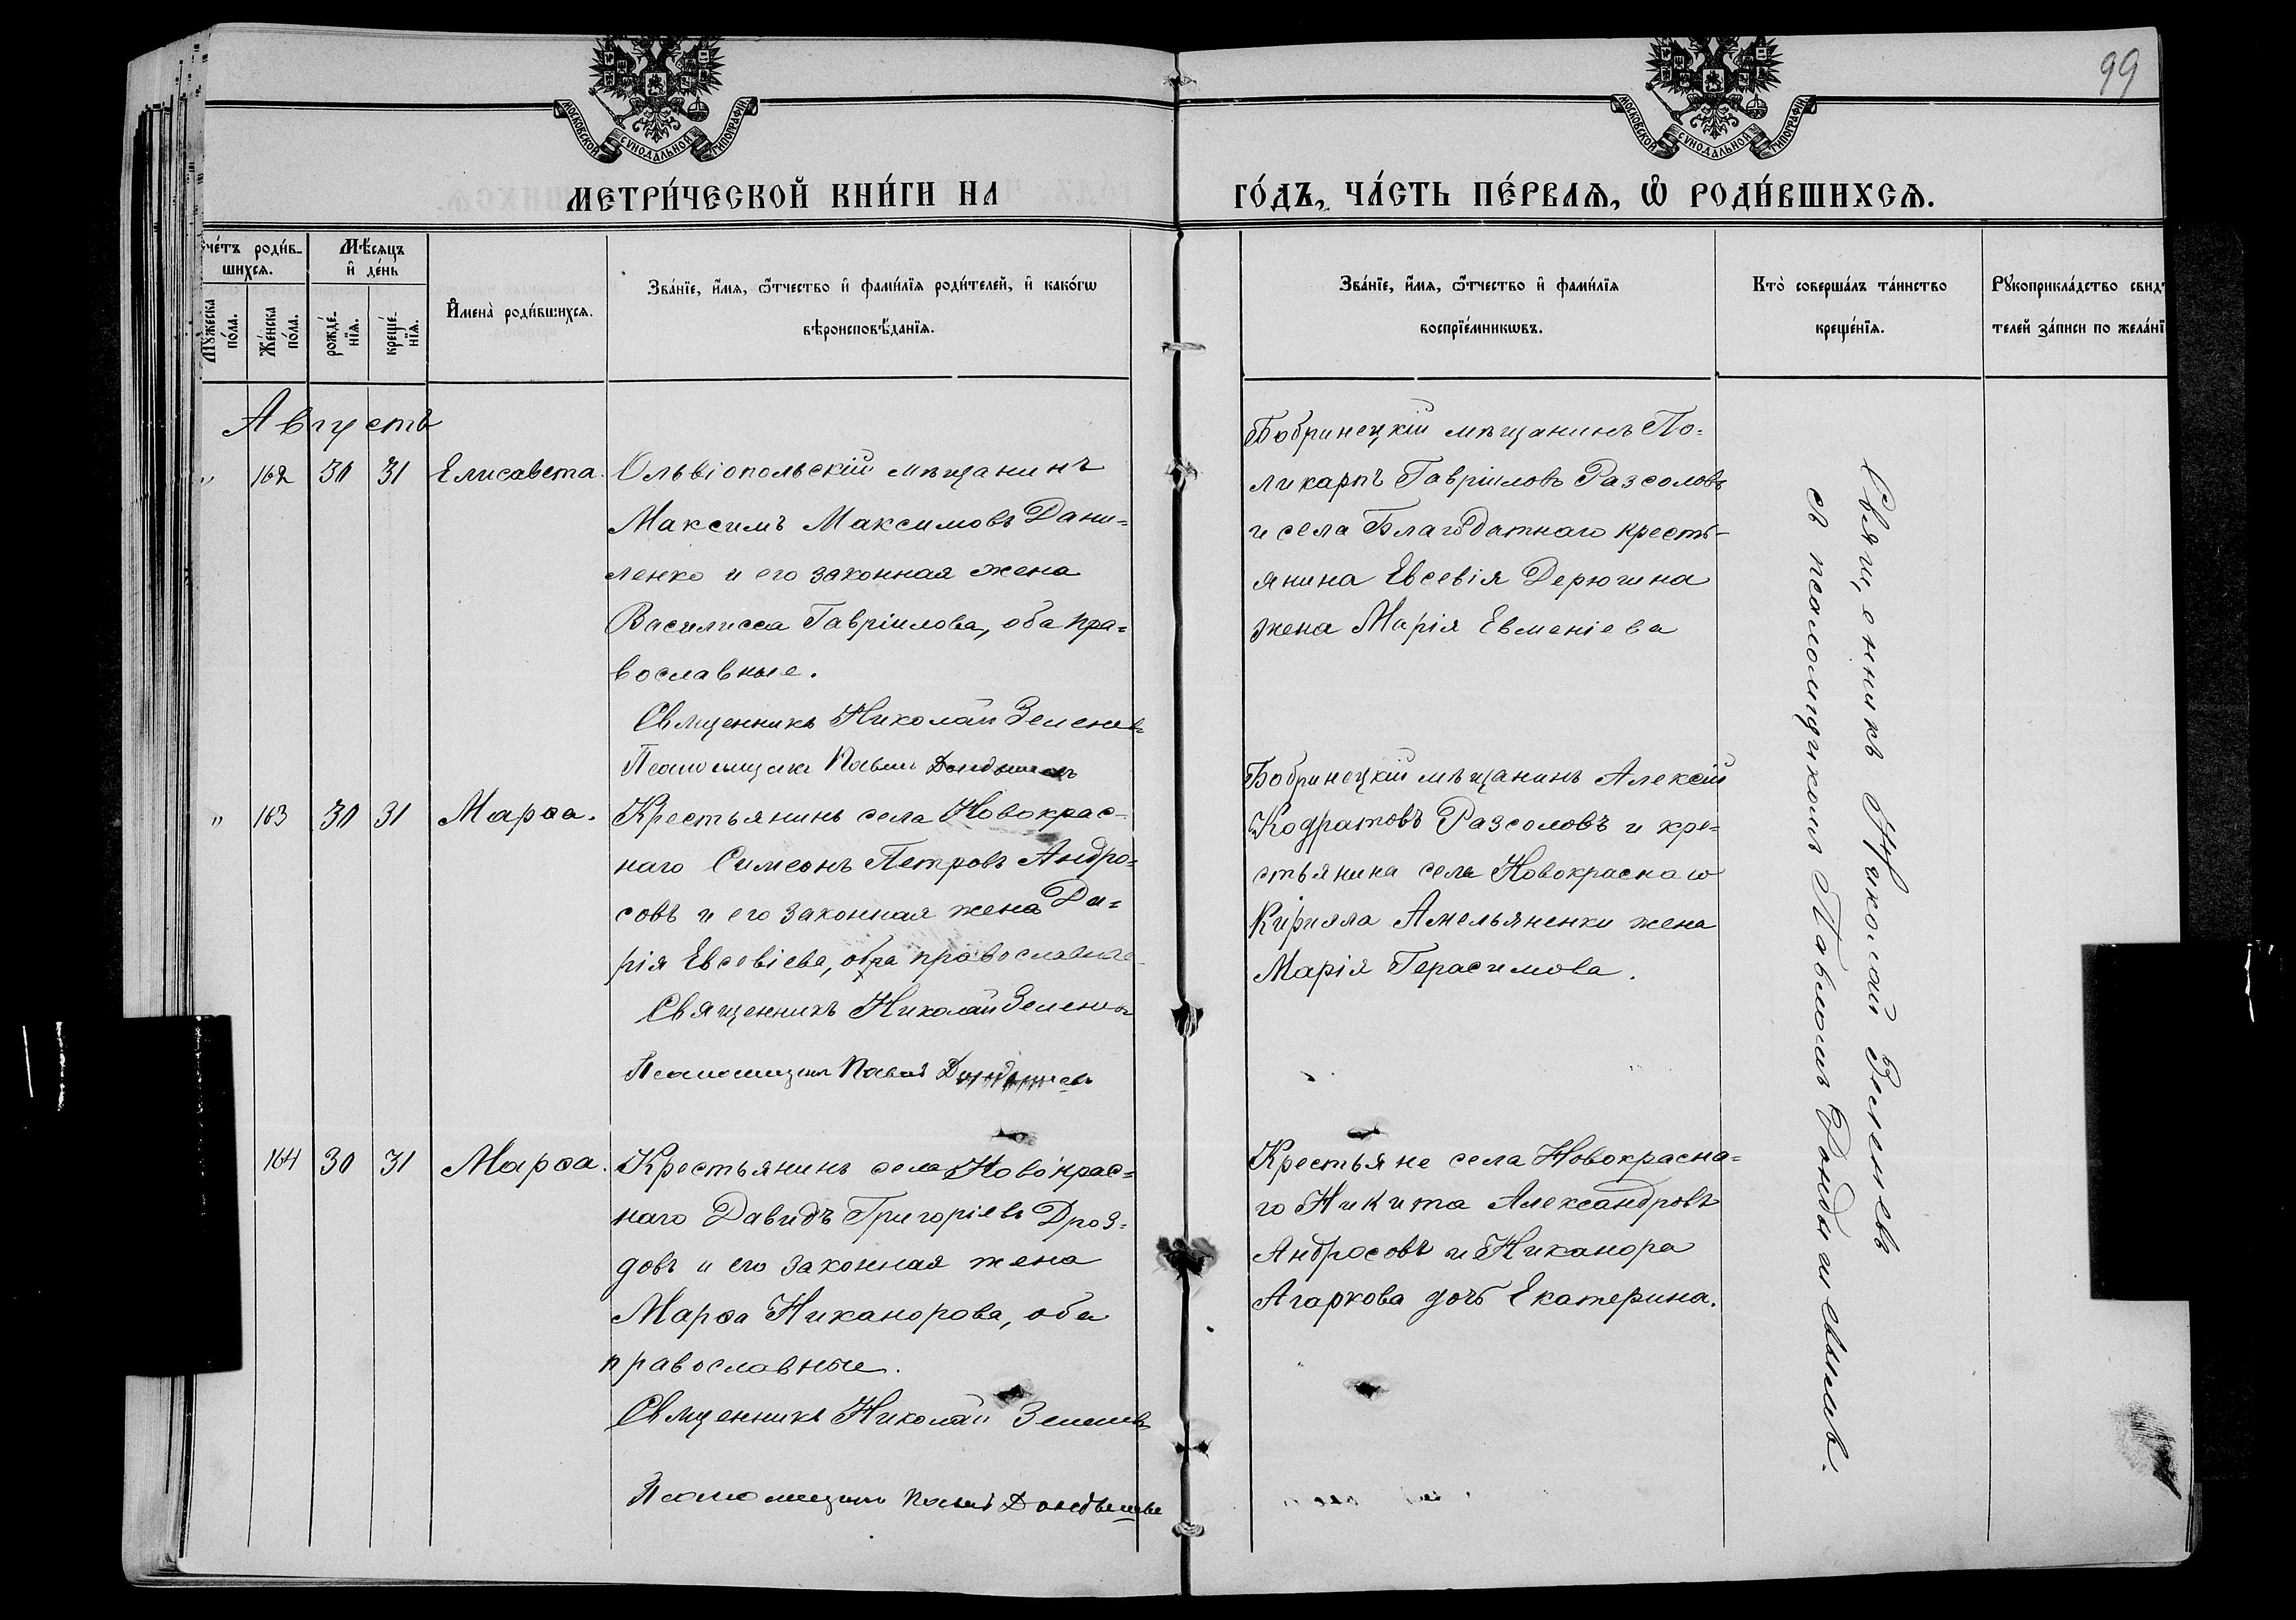 99
МОСКОВСКОЙ СѴНОДАЛЬНОЙ ТИПОГРАФІИ
МОСКОВСКОЙ СѴНОДАЛЬНОЙ ТИПОГРАФІИ
МЕТРИ́ЧЕСКОЙ КНИ́ГИ НА ГО́ДЪ, ЧА́СТЬ ПЕ́РВАѦ, Ѡ҆ РОДИ́ВШИХСѦ.
счетъ роди́в-
шихсѧ.
Мѣ́сѧцъ
и҆ де́нь
Мꙋжеска
по́ла.
Же́нска
по́ла.
рожде́-
нїѧ.
креще́-
нїѧ.
И҆мена̀ роди́вшихсѧ.
Зва́нїе, и҆́мѧ, ѻ҆́тчество и҆ фами́лїѧ роди́телей, и҆ како́гѡ
вѣроисповѣ́данїѧ.
Зва́нїе, и҆́мѧ, ѻ҆́тчество и҆ фами́лїѧ
воспрїе́мникѡвъ.
Кто̀ соверша́лъ та́инство
креще́нїѧ.
Рꙋкоприкла́дство свидѣ
телей за́писи по жела́нї
Августъ
" 162 30 31 Елисавета. Ольвіопольскій мѣщанинъ
Максимъ Максимовъ Дани-
ленко и его законная жена
Василисса Гавріилова, оба пра-
вославные.
Священникъ Николай Зеленев
Псаломщикъ Павелъ
Бобринецкій мѣщанинъ По-
ликарпъ Гавріиловъ Разсоловъ
и села Благодатнаго кресть-
янина Евсевія Дерюгина
жена Марія Евменіева
" 163 30 31 Марѳа. Крестьянинъ села Новокрас-
наго Симеонъ Петровъ Андро-
совъ и его законная жена Да-
рія Евсевіева, оба православные
Священникъ Николай Зеленев
Псаломщикъ Павелъ
Бобринецкій мѣщанинъ Алексій
Кодратовъ Разсоловъ и кре-
стьянина села Новокраснаго
Кирилла Амельяненки жена
Марія Герасимова.
164 30 31 Марѳа. Крестьянинъ села Новокрас-
наго Давидъ Григоріевъ Дроз-
довъ и его законная жена
Марѳа Никанорова, оба
православные.
Священникъ Николай Зеленев
Псаломщикъ Павелъ
Крестьяне села Новокрасна-
го Никита Александровъ
Андросовъ и Никанора
Агаркова дочь Екатерина.
Священникъ Николай Зеленевъ
съ псаломщикомъ Павломъ